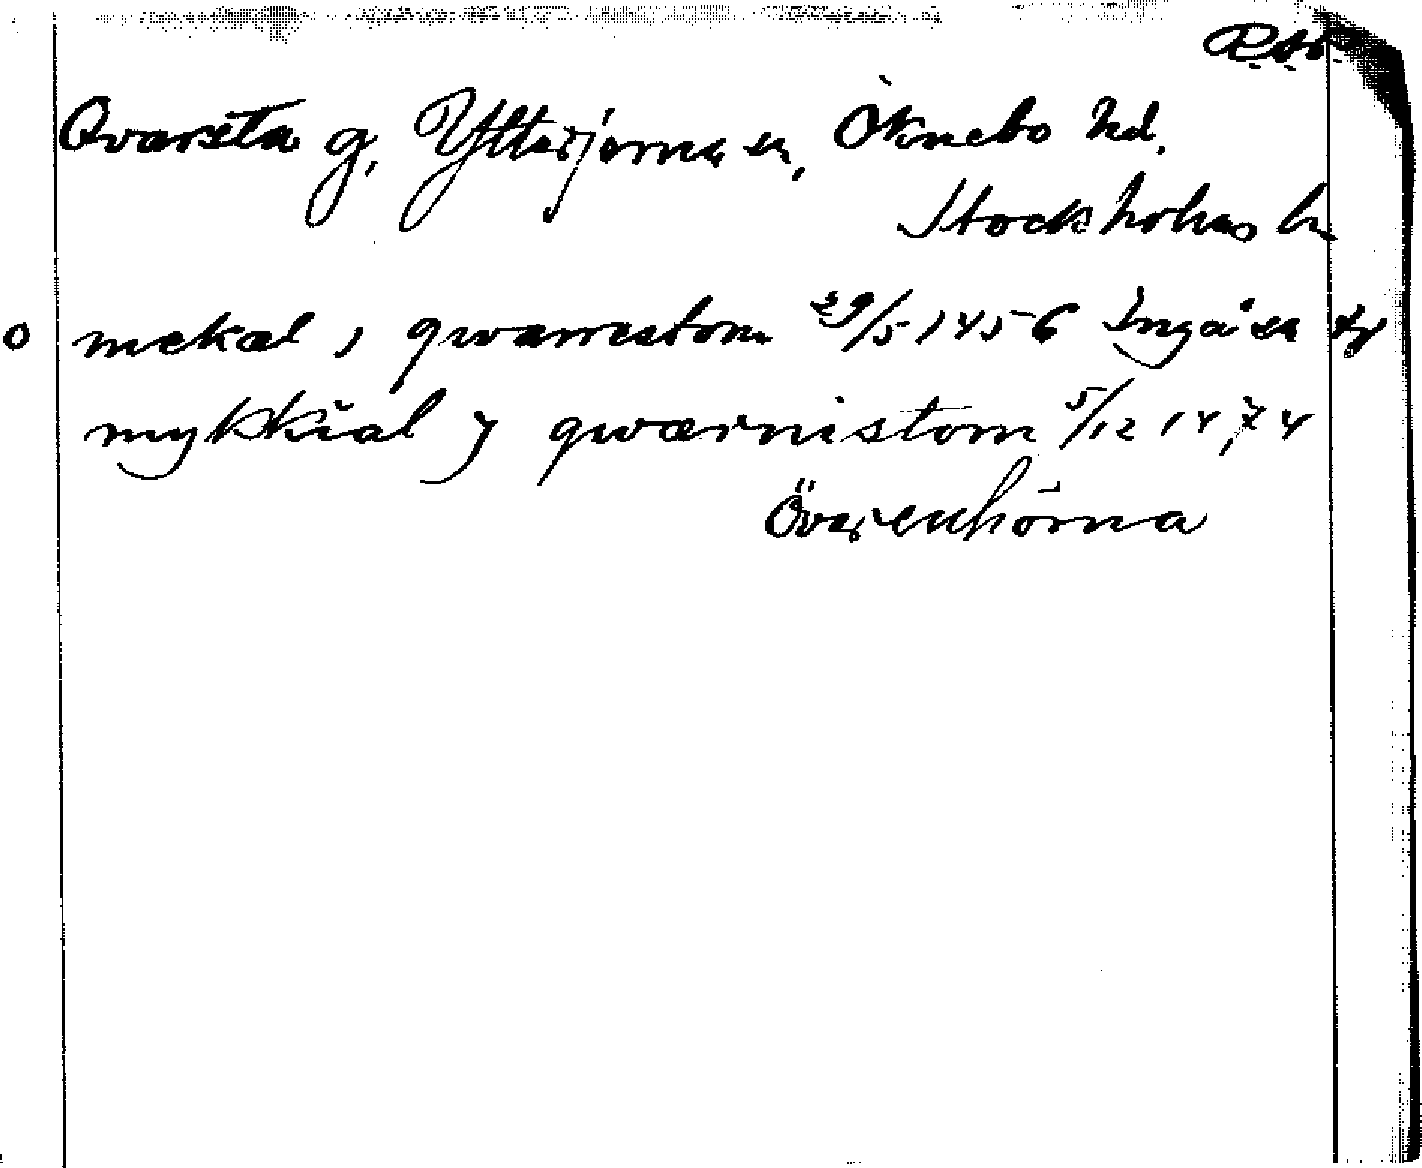 Qvarsta g, Ytterjerna sn, Öknebo hd.
Stockholms ln
o mekæl, qwarnestom 29/5 1456 Ingå sn
mykkial j qwærnistom 5/12 1474
Överenhörna